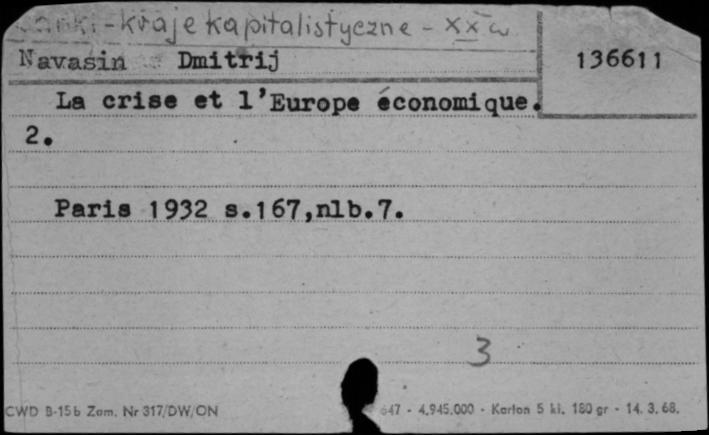 Banki - kraje kapitalistyczne - XX w
Navasin Dmitrij
136611
La crise et l'Europe économique.
2.
Paris 1932 s.167,nlb.7.
3
CWD B-15b Zam. Nr 317/DW/ON
647 - 4.945.000 - Karton 5 kl. 180 gr - 14. 3. 68.